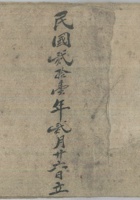 民國貳拾壹年貳月廿六日立